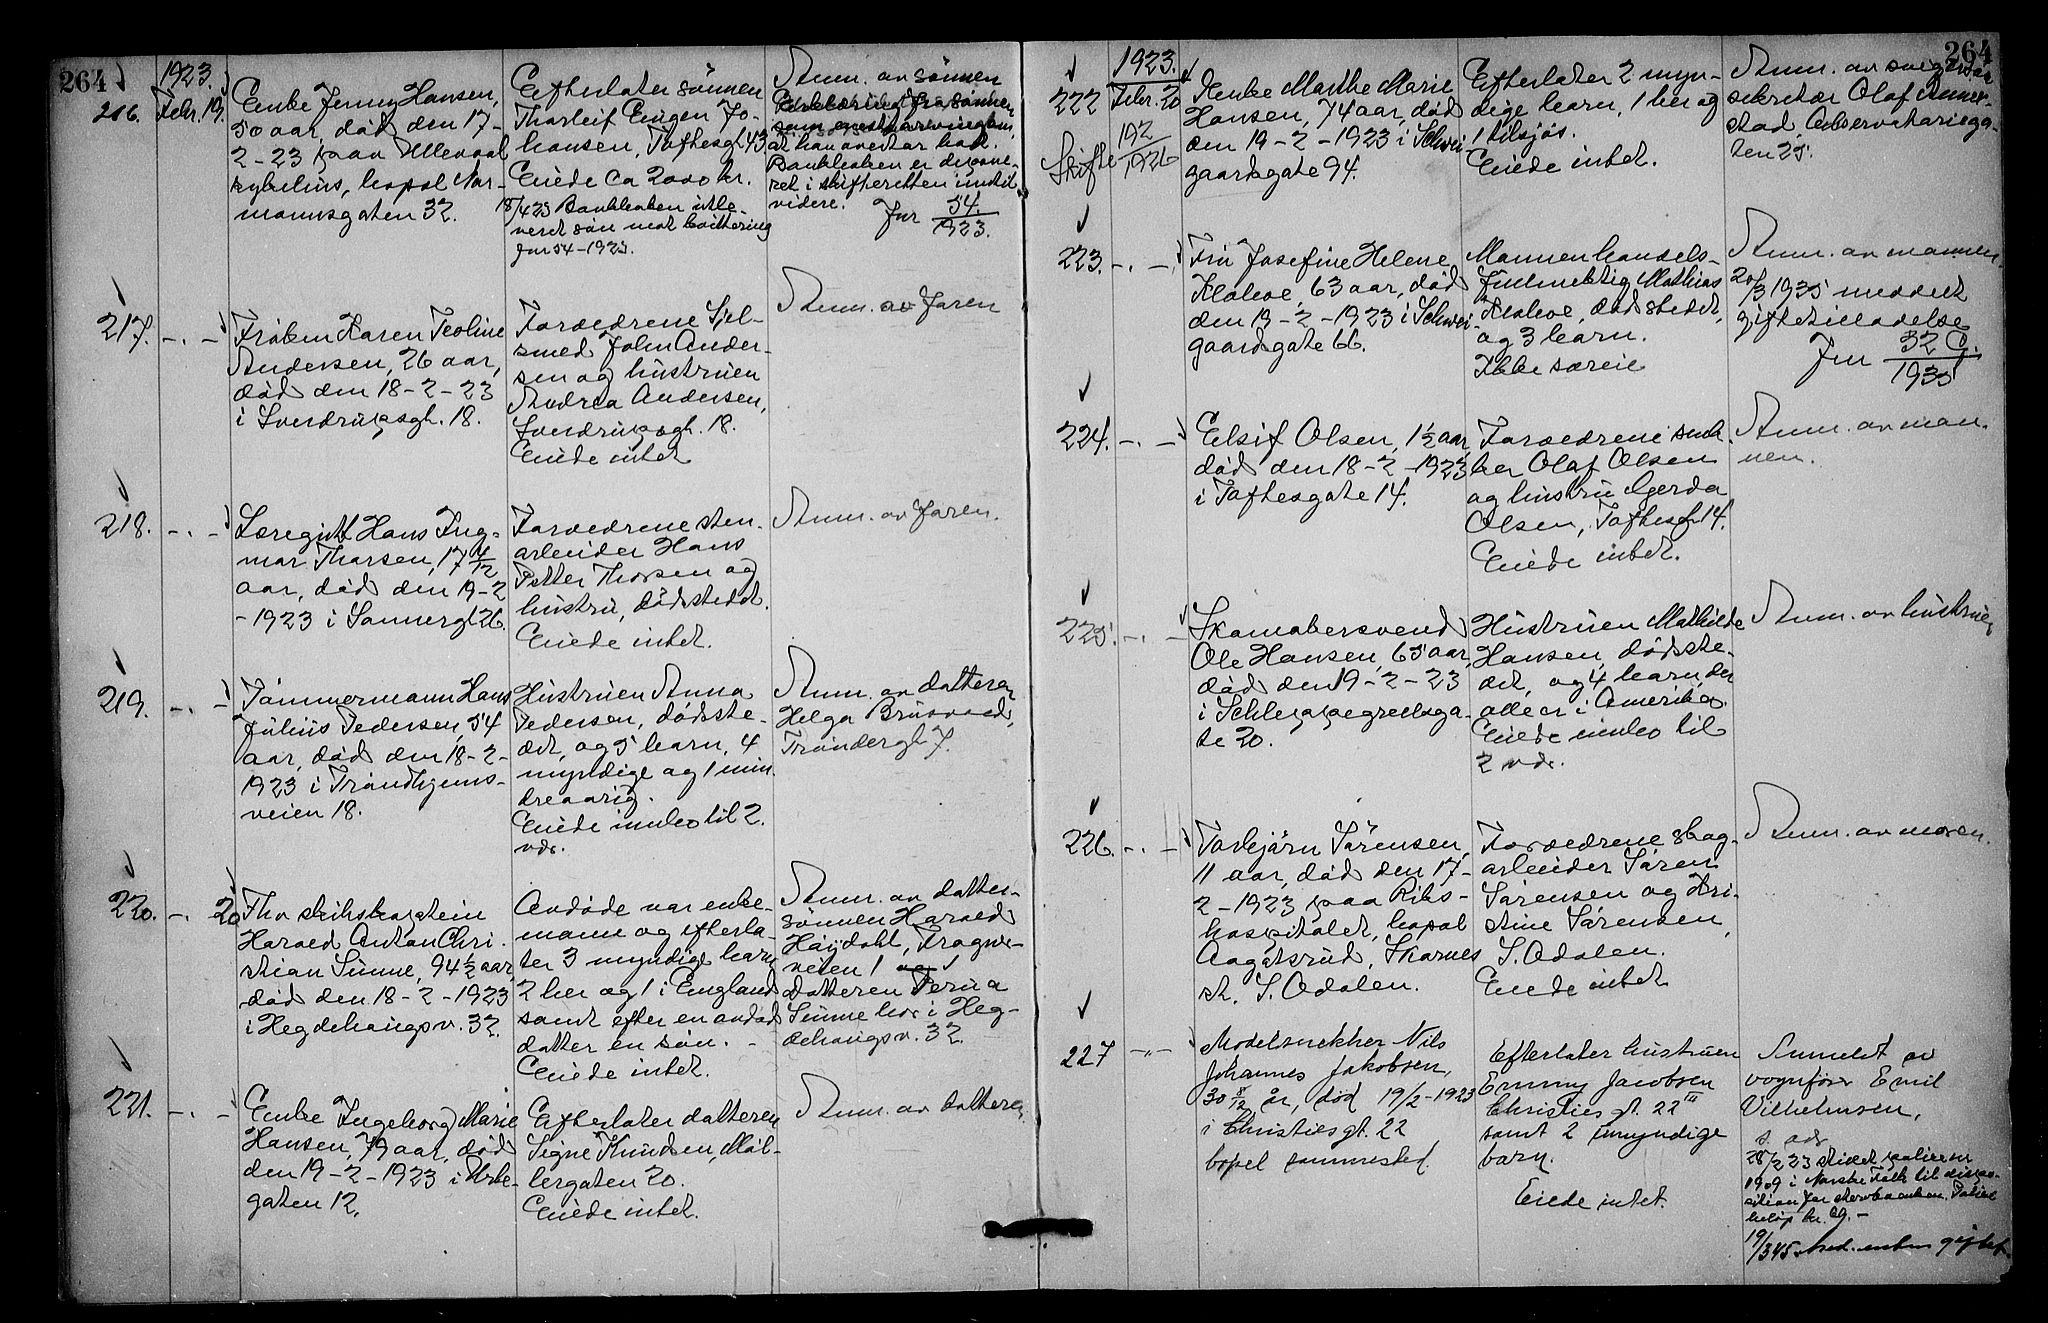 264
1923.
216. Febr. 19.
Enke Jenny Hansen,
50 aar, død den 17-
2-23 paa Ullevaal
sykehus, bopæl Nor-
mannsgaten 32.
Efterlater sönnen
Thorleif Eugen Jo-
hansen, Toftesgt 43
Eiede ca 2000 kr.
18/4 23 Bankboken utle-
veret søn mot kvittering
Jnr 54-1923.
Anm. av sönnen
at han overtar boet.
Bankboken er depone-
ret i skifteretten indtil
videre.
Jnr 54/1923.
217. -.-
Fröken Karen Teoline
Andersen, 26 aar,
död den 18-2-23
i Sverdrupsgt. 18.
Forældrene
smed John Ander-
sen og hustruen
Andrea Andersen,
Sverdrupsgt. 18.
Eiede intet
Anm. av faren
218. -.-
Læregutt Hans Ing-
mar Thorsen, 17 4/12
aar, död den 19-2
-1923 i Sannergt 26.
Forældrene sten-
arbeider Hans
Petter Thorsen og
hustru, dödstedet.
Eiede intet.
Anm. av faren.
219. -.-
Tömmermann Hans
Julius Pedersen, 54
aar, död den 18-2-
1923 i Trondhjems-
veien 18.
Hustruen Anna
Pedersen, dødste-
det, og 5 barn, 4
myndige og 1 min-
dreaarig.
Eiede innbo til 2.
vdr.
Anm. av datteren
Helga
Tröndergt 7.
220. -. 20
Fhv skibskaptein
Harald Anton Chri-
stian Sinne, 94 1/2 aar,
død den 18-2-1923
i Hegdehaugsv. 32.
Avdøde var enke-
mann og efterla-
ter 3 myndige barn
2 her og 1 i England
samt efter en avdød
datter en sön. -
Eiede intet.
Anm. av datter-
sønnen Harald
Høijdahl, Frogner-
veien 1
Datteren
Sinne bor i Heg-
dehaugsv. 32.
221. -.-
Enke Ingeborg Marie
Hansen, 79 aar, død
den 19-2-1923 i Urte-
gaten 12.
Efterlater datteren
Signe Knudsen, Möl-
lergaten 20.
Eiede intet.
Anm. av datteren
264
1923.
222 Febr. 20
Skifte 192/1926
Enke Marthe Marie
Hansen, 74 aar, død
den 19-2-1923 i Schwei-
gaardsgate 94.
Efterlater 2 myn-
dige barn, 1 her og
1 tilsjøs.
Eiede intet.
Anm. av svigersøn
sekretær Olaf
stad, Observatoriega-
ten 25.
223. -.-
Fru Josefine Helene
Kloboe, 63 aar, død
den 19-2-1923 i Schwei-
gaardsgate 66.
Mannen handels-
fuldmektig Mathias
Kloboe, dødstedet,
og 3 barn.
Ikke særeie
Anm. av mannen.
20/3 1935 meddelt
giftetilladelse
Jnr 32 G./1935
224. -.-
Elsif Olsen, 1 1/2 aar,
død den 18-2-1923
i Toftesgate 14.
Forældrene snek-
ker Olaf Olsen
og hustru Gerda
Olsen, Toftesgt 14.
Eiede intet.
Anm. av man-
nen.
225. -.-
Skomakersvend
Ole Hansen, 65 aar,
død den 19-2-23
i Schleppegrellsga-
te 20.
Hustruen Mathilde
Hansen, dødste-
det, og 4 barn, der
alle er i Amerika.
Eiede innbo til
2 vdr.
Anm. av hustruen
226. -.-
Torbjørn Sörensen,
11 aar, død den 17-
2-1923 paa Riks-
hospitalet, bopæl
Aagatsrud, Skarnes
st. S. Odalen.
Forældrene skog-
arbeider Sören
Sörensen og Kri-
stine Sörensen,
S. Odalen.
Eiede intet
Anm. av moren.
227 -"-
Modelsnekker Nils
Johannes Jakobsen,
30 8/12 år, død 19/2-1923
i Christiesgt. 22
bopel sammested.
Efterlater hustruen
Emmy Jacobsen
Christies gt. 22 III
samt 2 umyndige
barn.
Eiede intet.
Anmeldt av
vognfører Emil
Vilhelmsen,
s. ads
28/2 23 polise nr
1909 i Norske Folk til dispo-
sition for
beløp kr. 69.-
19/3 45